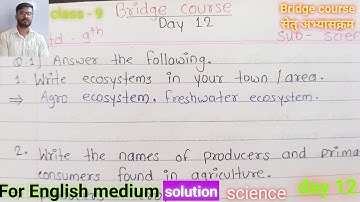 class - 9
Bridge course
Bridge course
सेतु अभ्यासक्रम
Day 12
9th
Sub - Scien
Q.1) Answer the following.
1. Write ecosystems in your town / area.
⇒ Agro ecosystem, freshwater ecosystem.
2. Write the names of producers and prima
consumers found in agriculture.
For English medium solution science
day 12